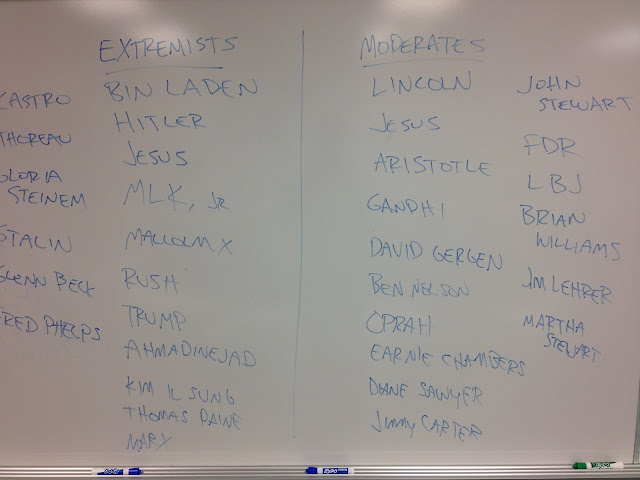 EXTREMISTS
CASTRO
THOREAU
GLORIA
STEINEM
STALIN
GLENN BECK
FRED PHELPS
BIN LADEN
HITLER
JESUS
MLK, JR
MALCOLM X
RUSH
TRUMP
AHMADINEJAD
KIM IL SUNG
THOMAS PAINE
MARX
MODERATES
LINCOLN
JESUS
ARISTOTLE
GANDHI
DAVID GERGEN
BEN NELSON
OPRAH
EARNIE CHAMBERS
DIANE SAWYER
JIMMY CARTER
JOHN
STEWART
FDR
LBJ
BRIAN
WILLIAMS
JIM LEHRER
MARTHA
STEWART
EXPO